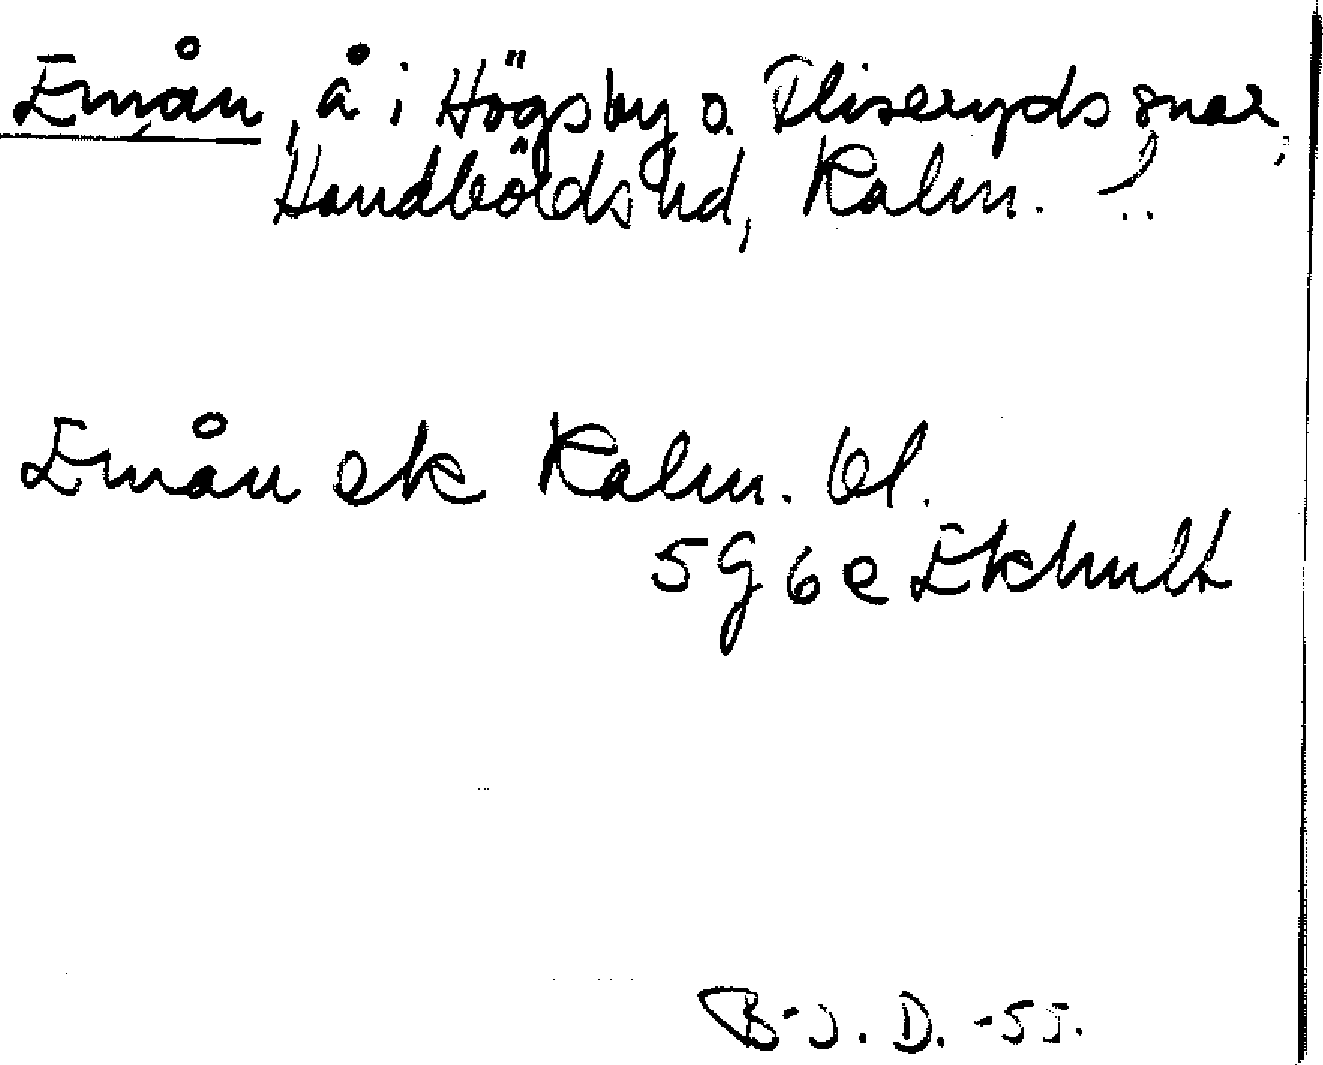 Emån, å i Högsby o. Fliseryds snar,
Handbörds hd, Kalm. l.
Emån ek Kalm. bl.
5 G 6 e Ekhult
B-J. D. -55.